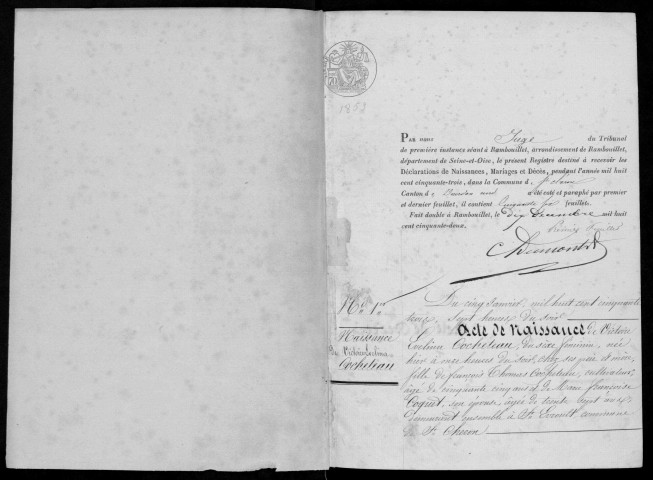 1853
PAR nous Juge du Tribunal
de première instance séant à Rambouillet, arrondissement de Rambouillet,
département de Seine-et-Oise, le présent Registre destiné à recevoir les
Déclarations de Naissances, Mariages et Décès, pendant l'année mil huit
cent cinquante-trois, dans la Commune d
Canton d a été coté et paraphé par premier
et dernier feuillet, il contient feuillets.
Fait double à Rambouillet, le dix Décembre mil huit
cent cinquante-deux.
Premier feuillet
N.° 1.er
Naissance
de Victoire Evelina
Cocheteau
Du cinq Janvier, mil huit cent cinquante
trois, sept heures du soir
Acte de Naissance de Victoire
Evelina Cocheteau du sexe féminin, née
hier à onze heures du soir, chez ses père et mère,
fille de françois Thomas Cocheteau, cultivateur,
âgé de cinquante cinq ans et de Marie françoise
Coquet, son épouse âgée de trente sept ans
demeurant ensemble à St. commune
de St.